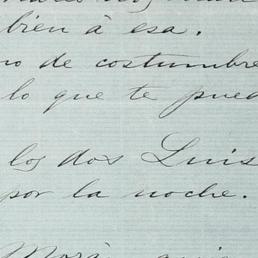 bien á esa.
o de costumbre
lo que te pued
los dos Luis
por la noche.